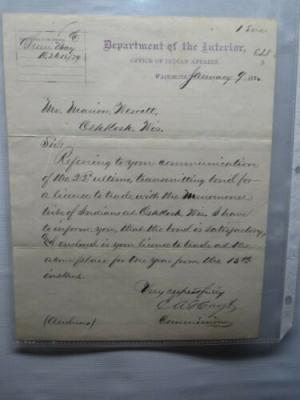 Department of the Interior,
OFFICE OF INDIAN AFFAIRS,
WASHINGTON, January 9, 1880
Green Bay
Mr. Marion Wescott,
Oshkosh, Wis.
Sir:
Referring to your communication
of the 22d ultimo, transmitting bond for
a licence to trade with the Menomonee
tribe of Indians at Oshkosh, Wis. I have
to inform you, that the bond is satisfactory,
enclosed is your licence to trade at the
same place for the year from the 15th
instant.
Very respectfully
E. A. Hayt
Commissioner